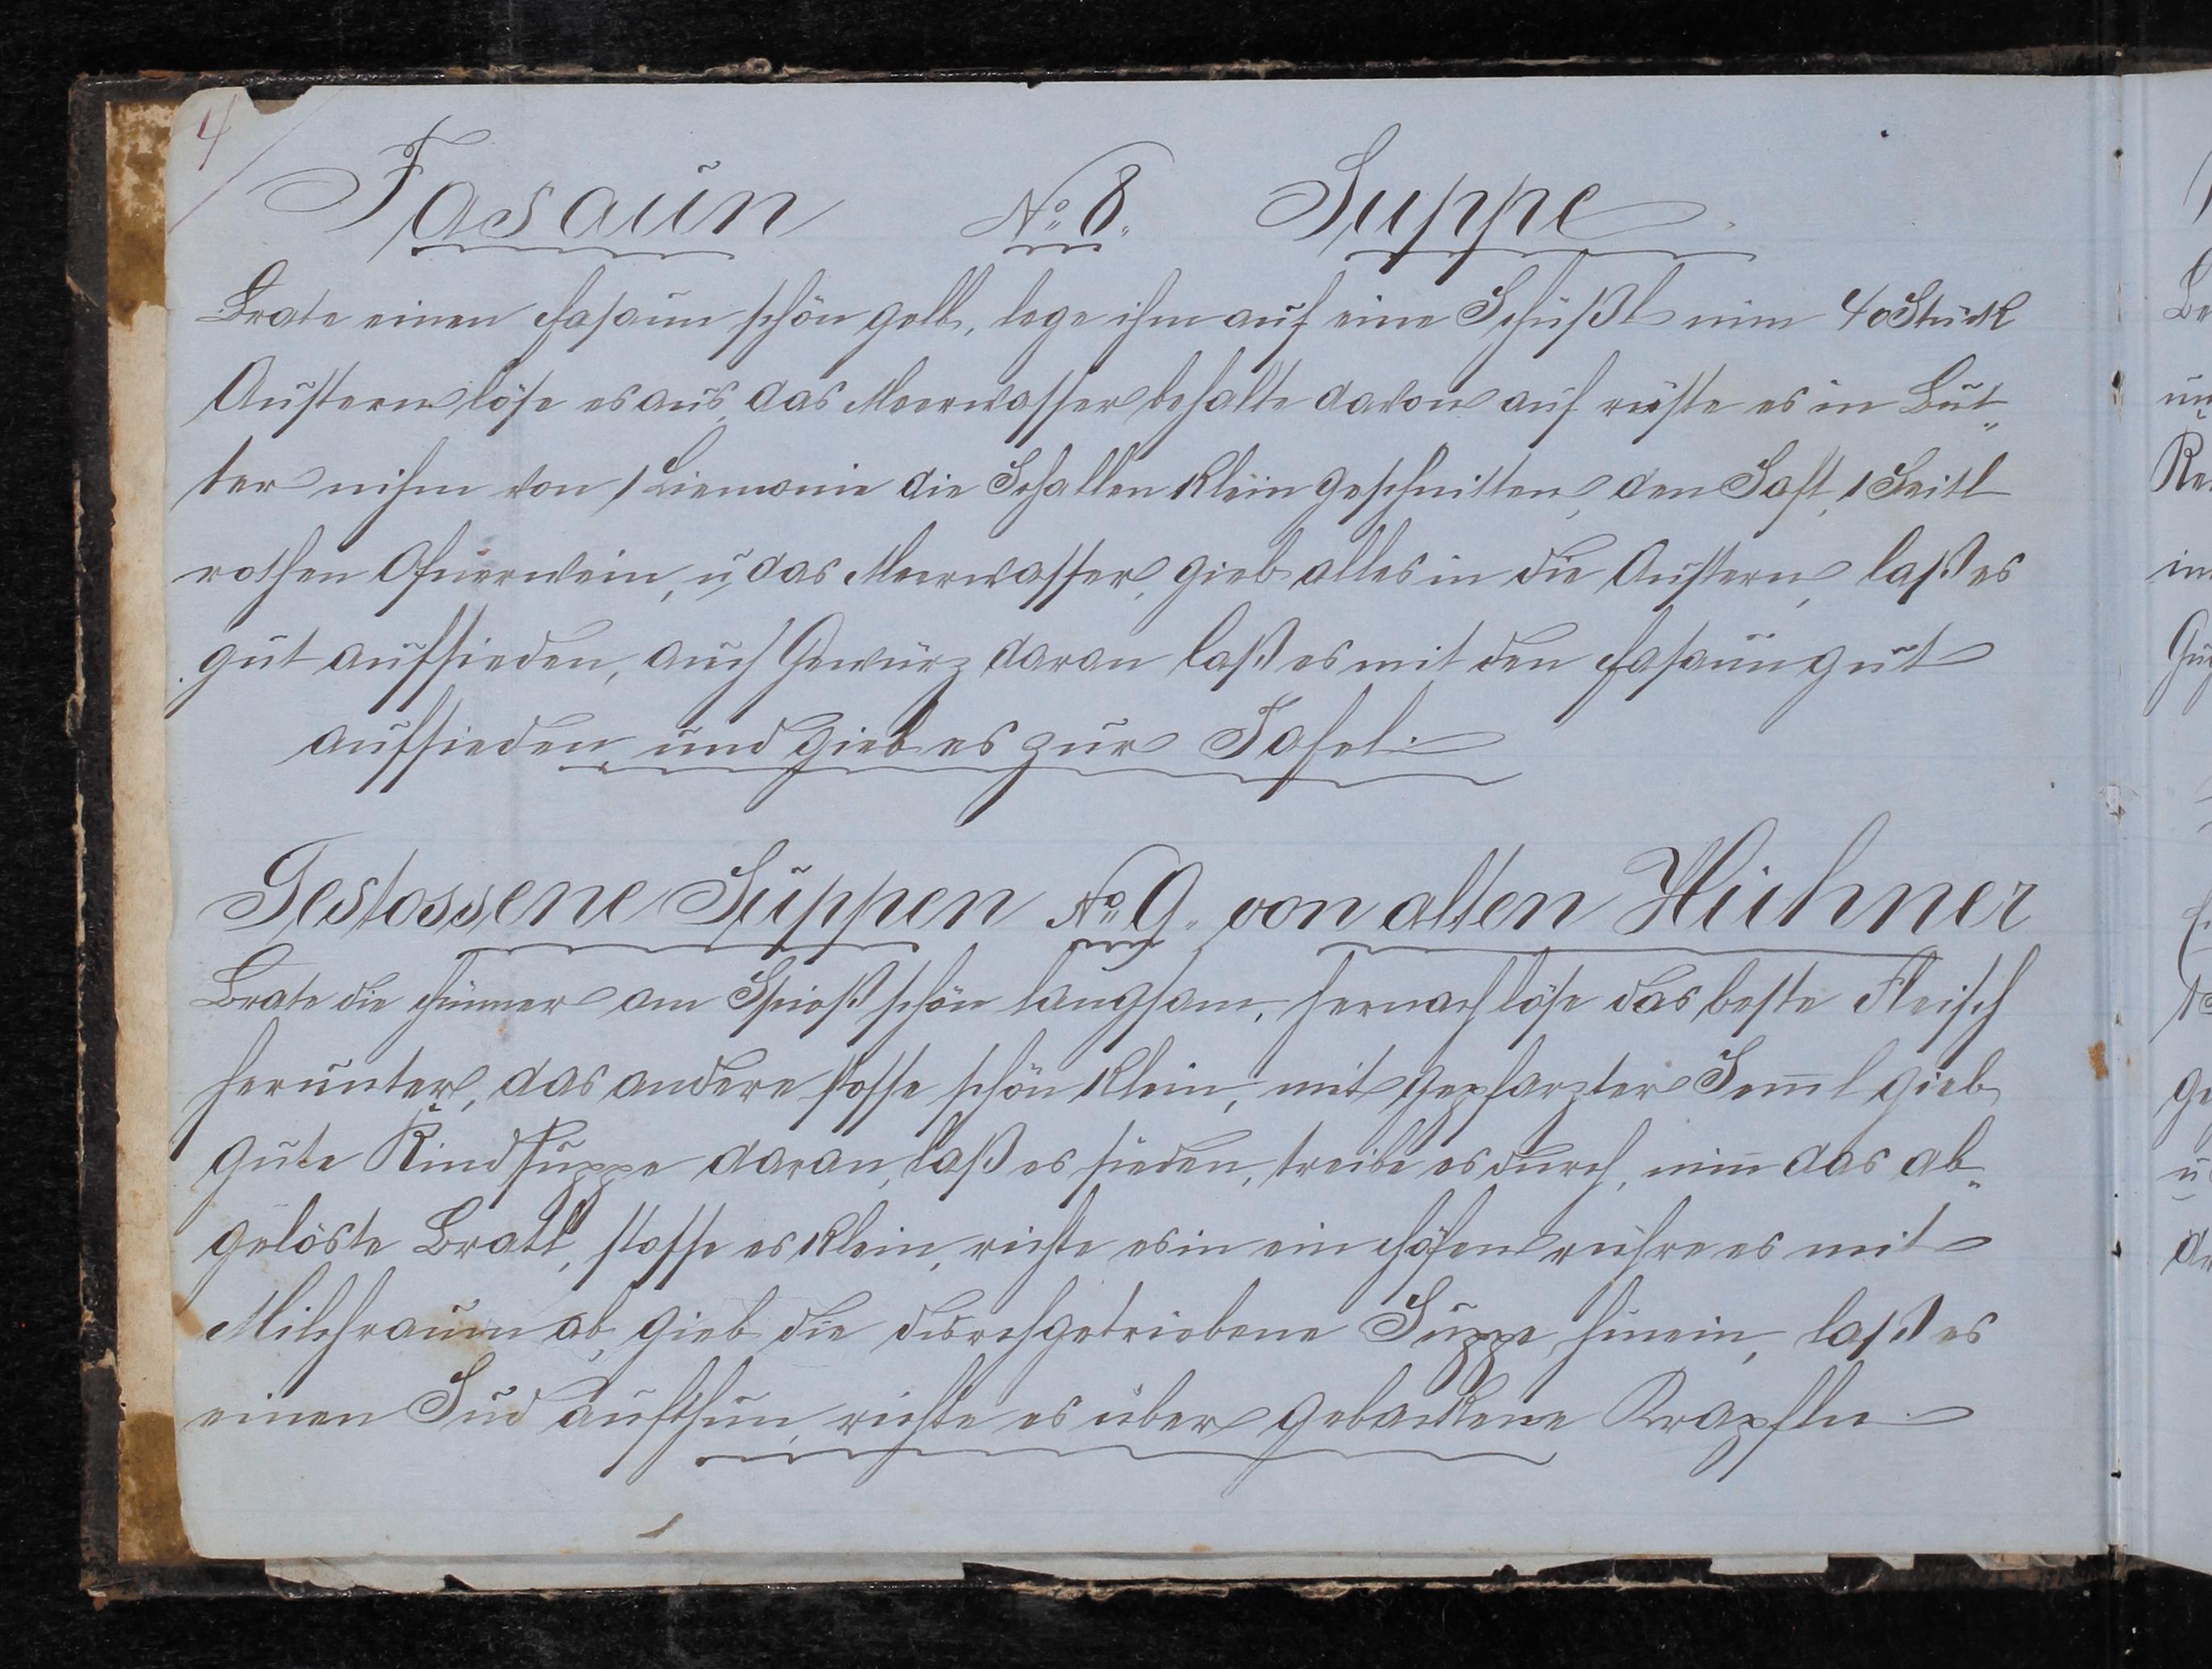 4
Fasaun No 8. Suppe
Brate einen Fasaun schön gelb, lege ihm auf eine Schüßl nim 40 Stück
Austern löse es aus, das Meerwasser behalte davon auf röste es in But„
ter nihm von 1 Liemonie die Schallen klein geschnitten, den Saft, 1 Seitl
rothen Ofnerwein, u das Meerwasser, gieb alles in die Austern, laß es
gut aufsieden, auch Gewürz daran laß es mit den Fasaun gut
aufsieden und gieb es zur Tafel.
Gestossene Suppen No 9. von alten Hühner
Brate die Hünner am Spieß schön langsam, hernach löse das beste Fleisch
herunter, das andere stosse schön klein, mit Seml gieb
gute Rindsuppe daran, laß es sieden, treibe es durch, nim das ab„
gelöste Bratl, stosse es klein, richte es in ein Häfen rühre es mit
Milchraum ab, gieb die durchgetriebene Suppe hinein, laß es
einen Sud aufthun, richte es über gebackene Krapfln.